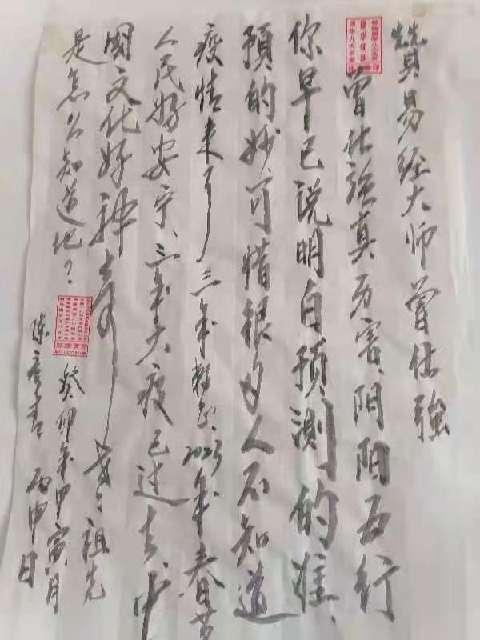 赞易经大师曾仕強
曾仕强真厉害、阴阳五行
你早已说明白预测的准、
预的妙可惜很多人不知道
疫情来了三年整、2023年春节
人民好安宁、三年大疫已过去中
國文化好神奇
老祖先
是怎么知道地？
癸卯年甲寅月
丙申日